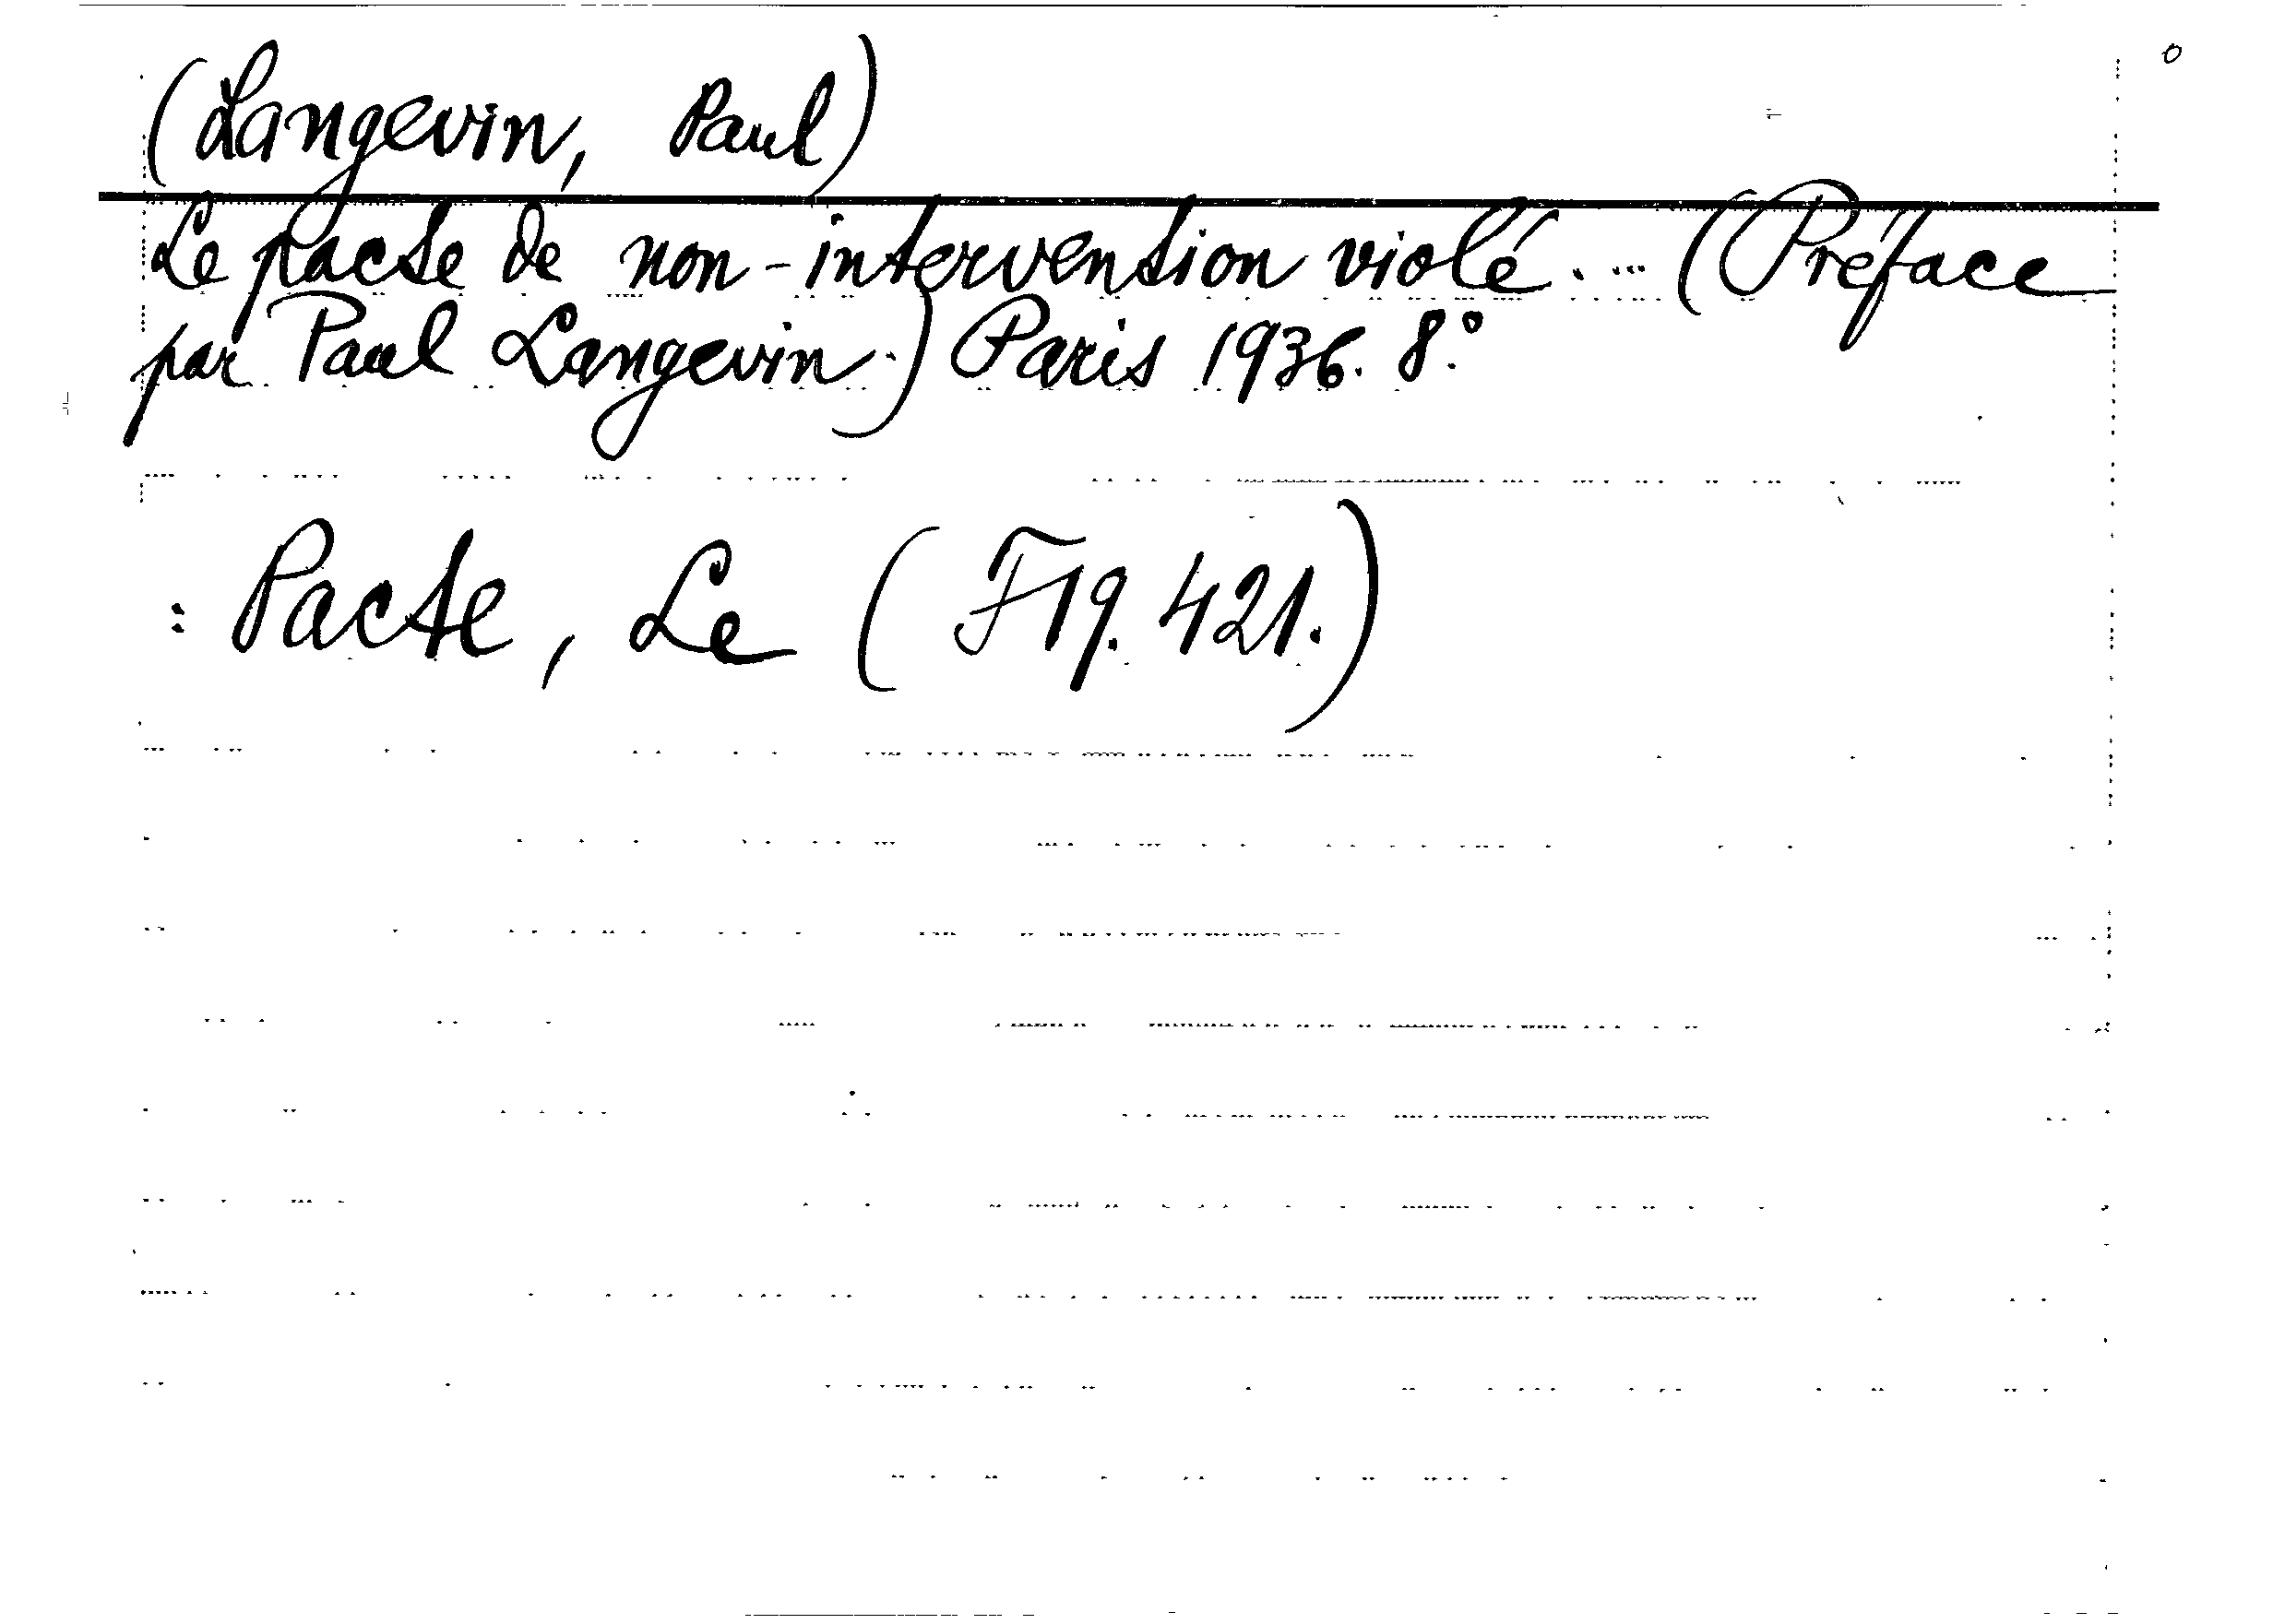 (Langevin, Paul)
Le pacte de non-intervention violé. ... (Préface
par Paul Langevin.) Paris 1936. 8.°
: Pacte, Le (F19. 421.)